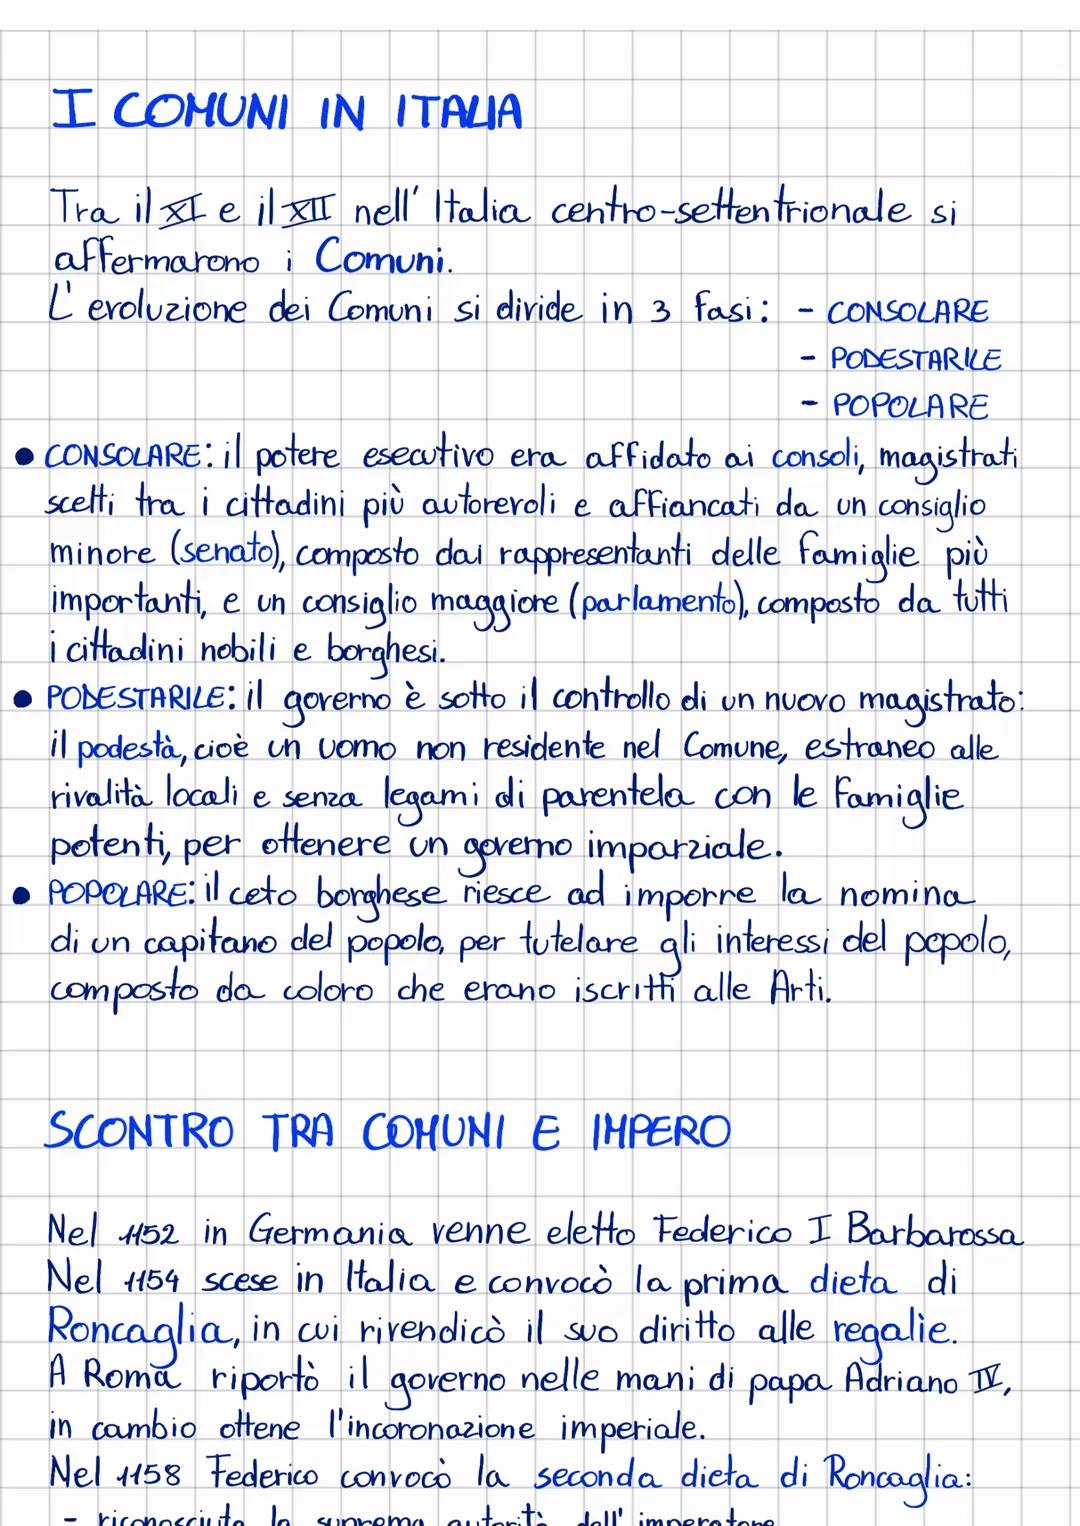 I COMUNI IN ITALIA
Tra il XI e il XII nell'Italia centro-settentrionale si
affermarono i Comuni.
L'evoluzione dei Comuni si divide in 3 fasi: - CONSOLARE
- PODESTARILE
- POPOLARE
• CONSOLARE: il potere esecutivo era affidato ai consoli, magistrati
scelti tra i cittadini più autorevoli e affiancati da un consiglio
minore (senato), composto dai rappresentanti delle famiglie più
importanti, e un consiglio maggiore (parlamento), composto da tutti
i cittadini nobili e borghesi.
• PODESTARILE: il governo è sotto il controllo di un nuovo magistrato:
il podestà, cioè un uomo non residente nel Comune, estraneo alle
rivalità locali e senza legami di parentela con le famiglie
potenti, per ottenere un governo imparziale.
• POPOLARE: il ceto borghese riesce ad imporre la nomina
di un capitano del popolo, per tutelare gli interessi del popolo,
composto da coloro che erano iscritti alle Arti.
SCONTRO TRA COMUNI E IMPERO
Nel 1152 in Germania venne eletto Federico I Barbarossa
Nel 1154 scese in Italia e convocò la prima dieta di
Roncaglia, in cui rivendicò il suo diritto alle regalìe.
A Roma riportò il governo nelle mani di papa Adriano IV,
in cambio ottene l'incoronazione imperiale.
Nel 1158 Federico convocò la seconda dieta di Roncaglia:
- riconosciuta la suprema autorità dell'imperatore